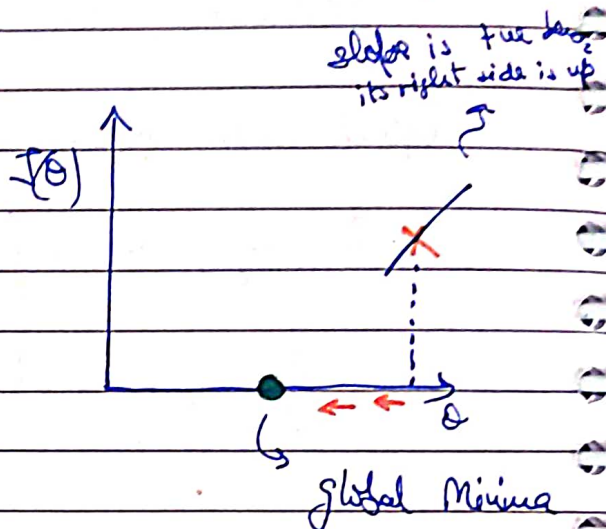 slope is +ve
its right side is up
J(θ)
θ
global Minima